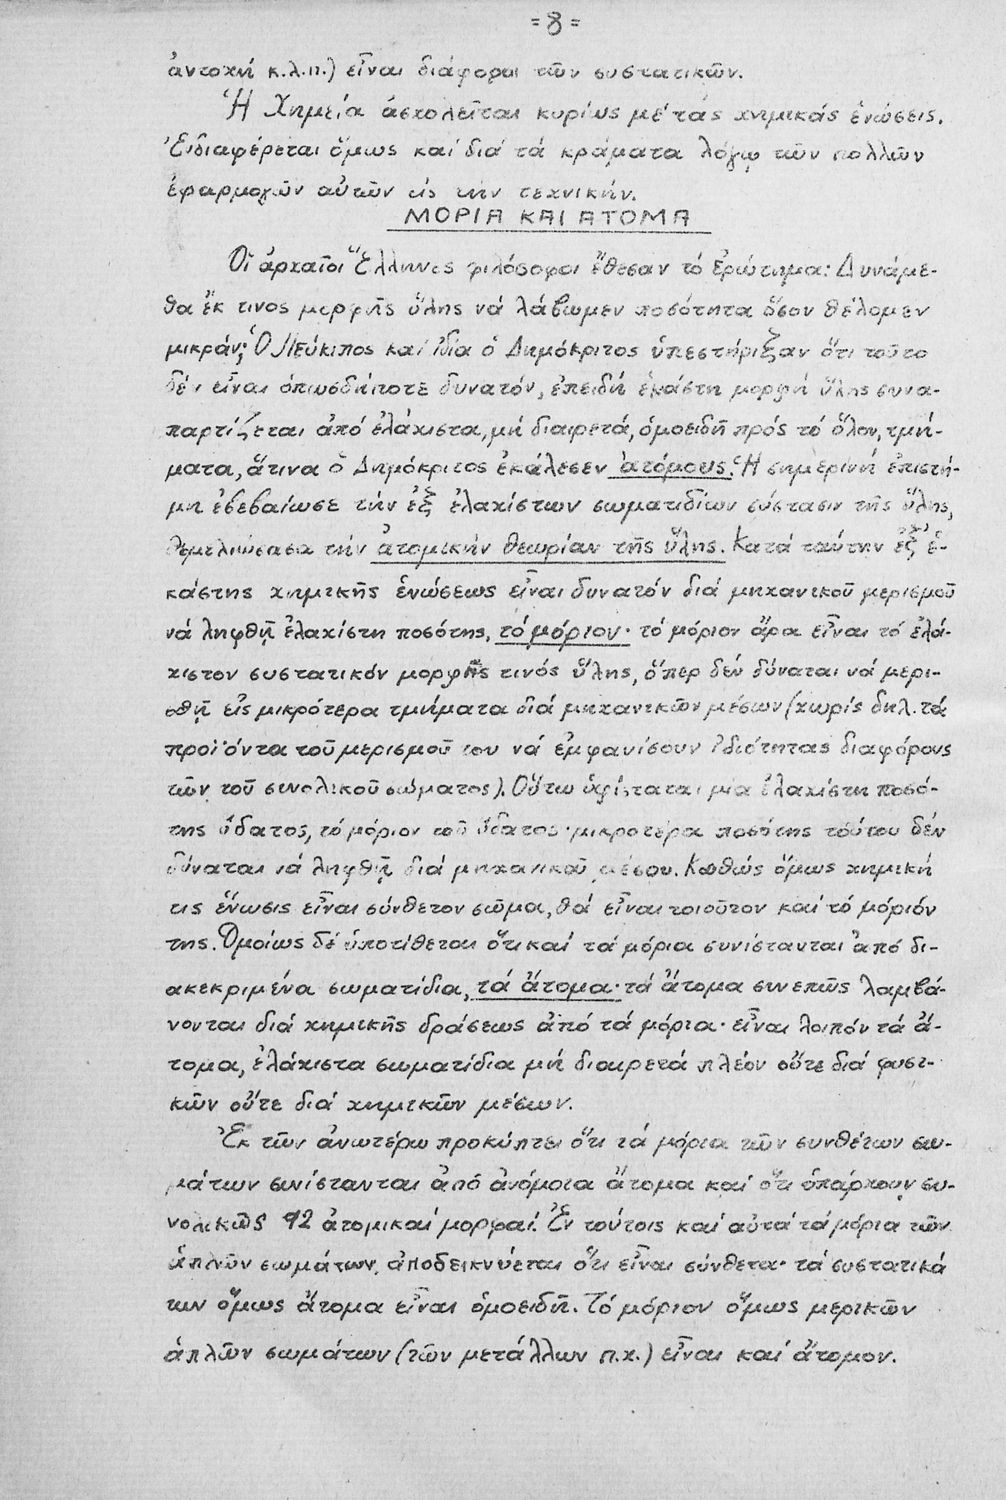 =8=
ἀντοχή κ.λ.π.) εἶναι διάφοροι τῶν συστατικῶν.
Ἡ Χημεία ἀσχολεῖται κυρίως μέ τάς χημικάς ἑνώσεις.
Ἐιδιαφέρεται ὅμως καί διά τά κράματα λόγῳ τῶν πολλῶν
ἐφαρμογῶν αὐτῶν εἰς τήν τεχνικήν.
ΜΟΡΙΑ ΚΑΙ ΑΤΟΜΑ
Οἱ ἀρχαῖοι Ἕλληνες φιλόσοφοι ἔθεσαν τό ἐρώτημα: Δυνάμε-
θα ἔκ τινος μορφῆς ὕλης νά λάβωμεν ποσότητα ὅσον θέλομεν
μικράν; Ὁ Λεύκιπος καί ἰδία ὁ Δημόκριτος ὑπεστήριξαν ὅτι τοῦτο
δέν εἶναι ὁπωσδήποτε δυνατόν, ἐπειδή ἑκάστη μορφή ὕλης συνα-
παρτίζεται ἀπό ἐλάχιστα, μή διαιρετά, ὁμοειδῆ πρός τό ὅλον, τμή-
ματα, ἅτινα ὁ Δημόκριτος ἐκάλεσεν ἀτόμους. Ἡ σημερινή ἐπιστή-
μη ἐβεβαίωσε τήν ἐξ ἐλαχίστων σωματιδίων σύστασιν τῆς ὕλης,
θεμελιώσασα τήν ἀτομικήν θεωρίαν τῆς ὕλης. Κατά ταύτην ἐξ ἑ-
κάστης χημικῆς ἑνώσεως εἶναι δυνατόν διά μηχανικοῦ μερισμοῦ
νά ληφθῇ ἐλαχίστη ποσότης, τό μόριον· τό μόριον ἄρα εἶναι τό ἐλά-
χιστον συστατικόν μορφῆς τινός ὕλης, ὅπερ δέν δύναται νά μερι-
σθῇ εἰς μικρότερα τμήματα διά μηχανικῶν μέσων (χωρίς δηλ. τά
προϊόντα τοῦ μερισμοῦ του νά ἐμφανίσουν ἰδιότητας διαφόρους
τῶν τοῦ συνολικοῦ σώματος). Οὕτω ὑφίσταται μία ἐλαχίστη ποσό-
της ὕδατος, τό μόριον τοῦ ὕδατος· μικροτέρα ποσότης τούτου δέν
δύναται νά ληφθῇ διά μηχανικοῦ μέσου. Καθώς ὅμως χημική
τις ἕνωσις εἶναι σύνθετον σῶμα, θά εἶναι τοιοῦτον καί τό μόριόν
της. Ὁμοίως δέ ὑποτίθεται ὅτι καί τά μόρια συνίστανται ἀπό δι-
ακεκριμένα σωματίδια, τά ἄτομα· τά ἄτομα συνεπῶς λαμβά-
νονται διά χημικῆς δράσεως ἀπό τά μόρια· εἶναι λοιπόν τά ἄ-
τομα, ἐλάχιστα σωματίδια μή διαιρετά πλέον οὔτε διά φυσι-
κῶν οὔτε διά χημικῶν μέσων.
Ἐκ τῶν ἀνωτέρω προκύπτει ὅτι τά μόρια τῶν συνθέτων σω-
μάτων συνίστανται ἀπό ἀνόμοια ἄτομα καί ὅτι ὑπάρχουν συ-
νολικῶς 92 ἀτομικαί μορφαί. Ἐν τούτοις καί αὐτά τά μόρια τῶν
ἁπλῶν σωμάτων ἀποδεικνύεται ὅτι εἶναι σύνθετα· τά συστατικά
των ὅμως ἄτομα εἶναι ὁμοειδῆ. Τό μόριον ὅμως μερικῶν
ἁπλῶν σωμάτων (τῶν μετάλλων π.χ.) εἶναι καί ἄτομον.